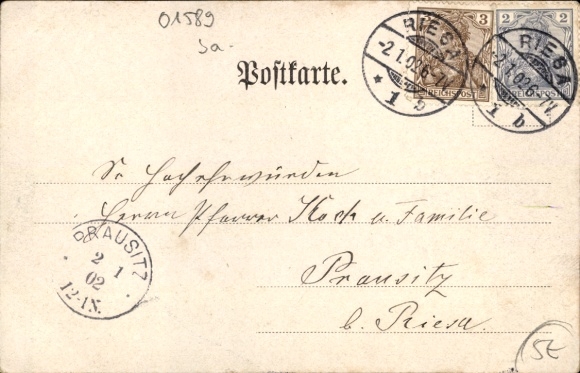 01589
Sa.
Postkarte.
3
REICHSPOST
2
REICHSPOST
RIESA
-2.1.02.6-7V.
* 1 b
RIESA
-2.1.02.6-7V.
* 1 b
Sr Hochehrwürden
Herrn Pfarrer Koch u. Familie
Prausitz
b. Riesa.
PRAUSITZ
2 1
02
12-1N.
SE